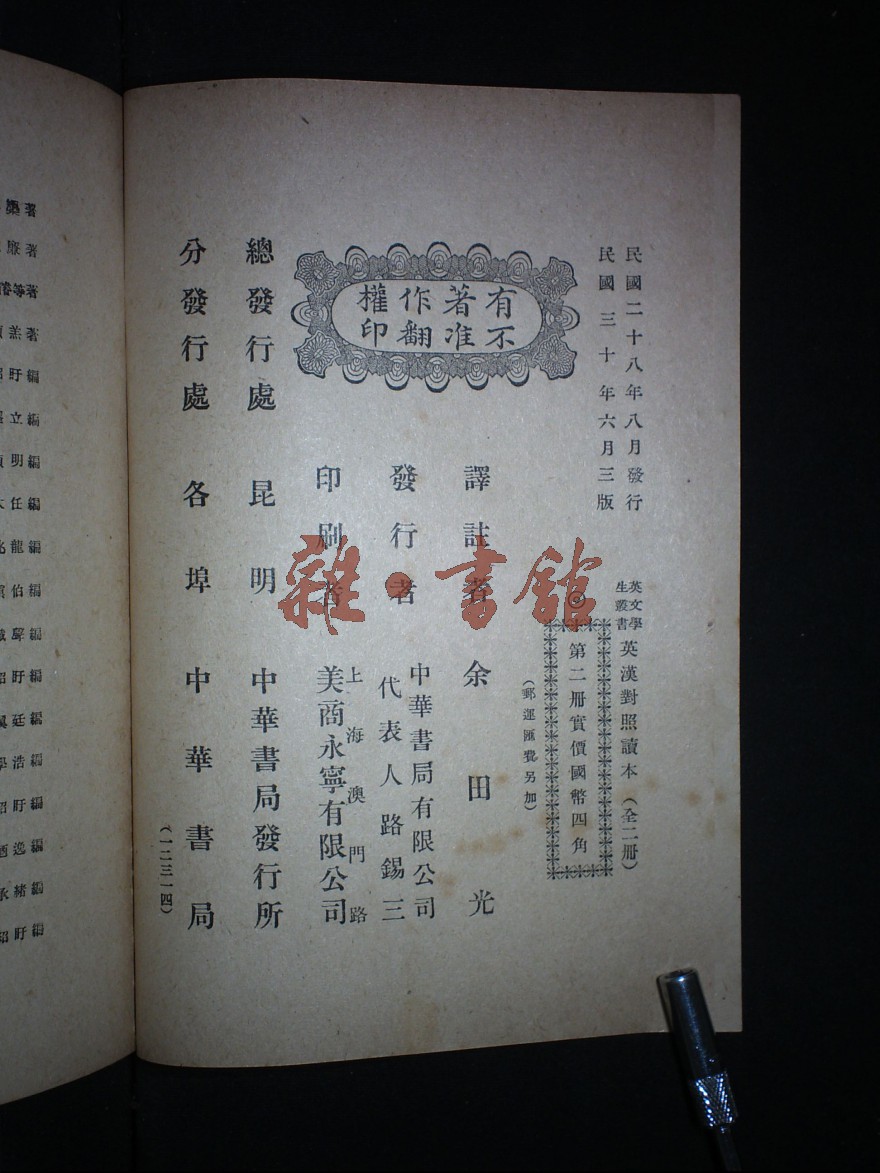 民國二十八年八月發行
民國三十年六月三版
英文學
生叢書
英漢對照讀本(全二冊)
◎第二冊實價國幣四角
(郵運匯費另加)
有著作權
不准翻印
譯註者 余田光
發行者
中華書局有限公司
代表人路錫三
印刷者
上海澳門路
美商永寧有限公司
總發行處 昆明 中華書局發行所
分發行處 各埠 中華書局
(一二三一四)
雜·書館
著
著
等著
著
盱編
立編
明編
任編
龍編
伯編
編
盱編
廷編
浩編
盱編
逸編
緒編
盱編